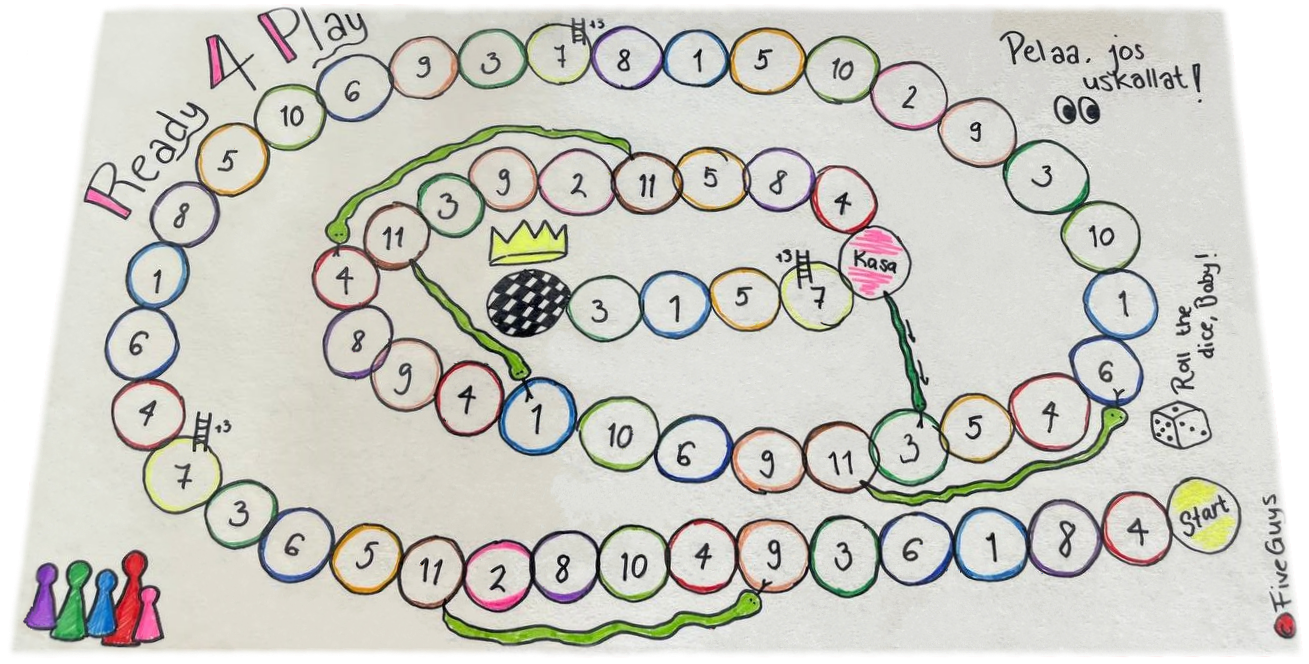 Ready 4 Play
Pelaa, jos
uskallat!
Roll the
dice, Baby!
Start 4 8 1 6 3 9 4 10 8 2 11 5 6 3 7 +3
4 6 1 8 5 10 6 9 3 7 +3
8 1 5 10 2 9 3 10 1 6
4 5 3 11 9 6 10 1 4 9 8 4
11 3 9 2 11 5 8 4 Kasa
7 +3 5 1 3
© Five Guys